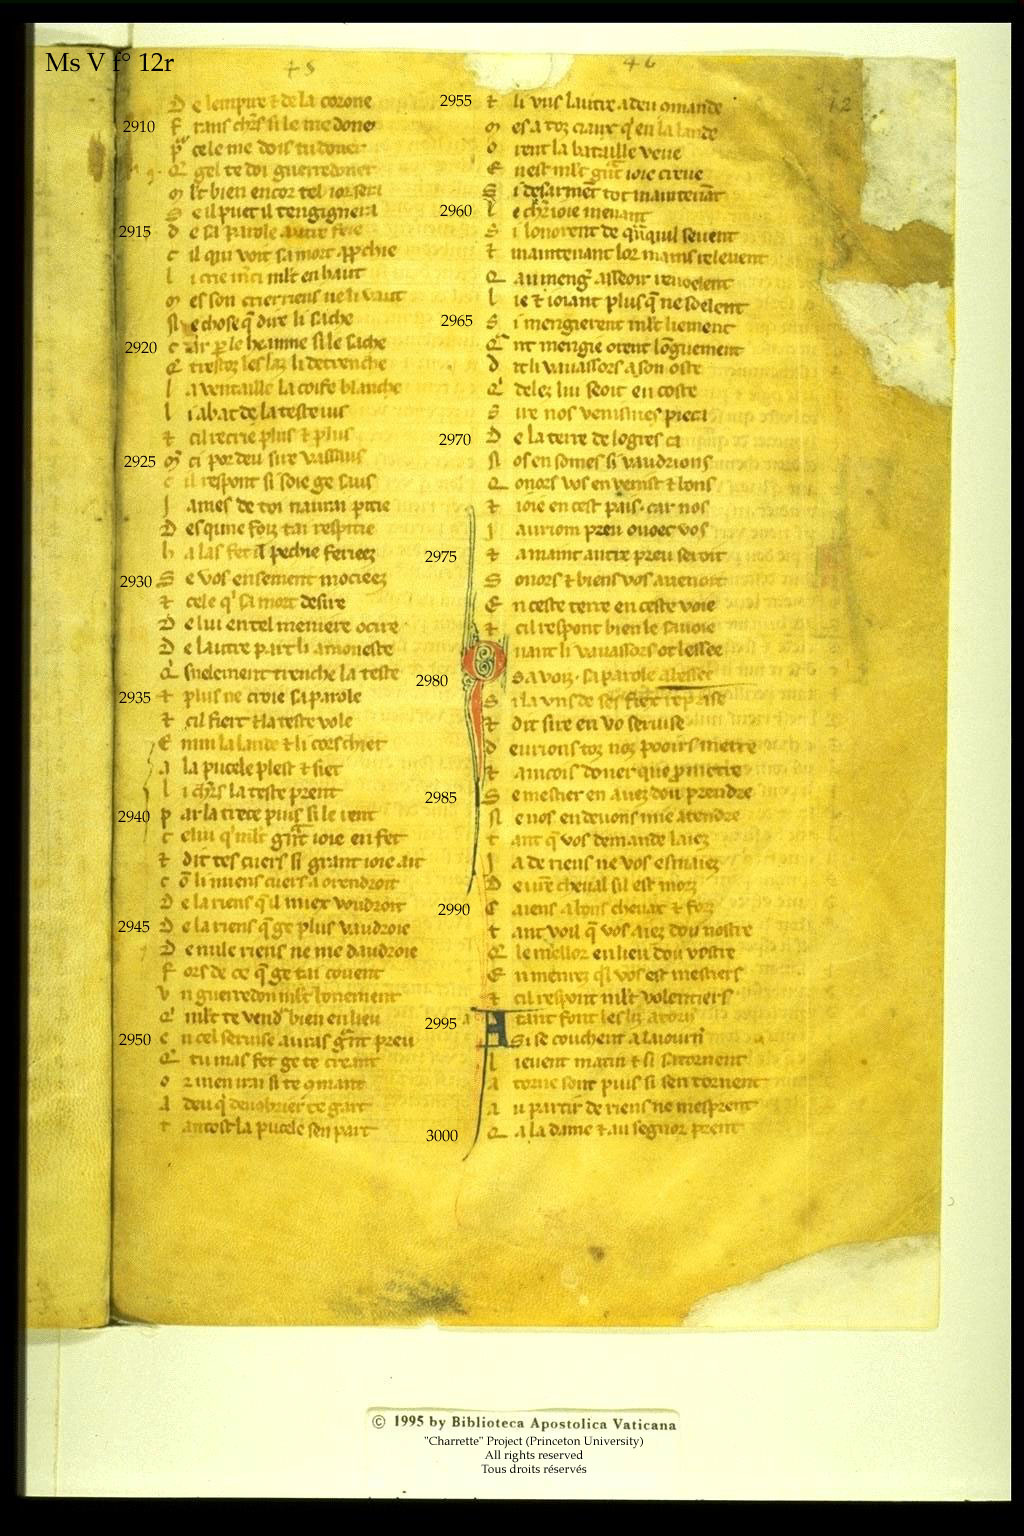 Ms V f° 12r
45
46
12
D e lempire ⁊ de la corone
2910 F ranf chrs̄ si le me done
P cele me doif tu doner
Q gel te doi guerredoner
m lt bien encor tel ior sera
S e il puet il tengignera
2915 d e sa parole autre foie
c il qui voit sa mort
l i crie m̄ci mlt en haut
m es son crier riens ne li vaut
N e chose q̄ dire li sache
2920 c ar p le heaume si le sache
Q trestoz les laz li detrenche
l a ventaille la coife blanche
l i abat de la teste ius
⁊ cil recrie plus ⁊ plus
2925 m ci por deu sire vassaus
c il respont si soie ge saus
J ames de toi naurai pitie
D esqune foiz tai respitie
h a las fet il pechie feriez
2930 S e vos ensement mociez
⁊ cele q' sa mort desire
D e lui en tel meniere ocire
D e lautre part li amoneste
Q sinelement trenche la teste
2935 ⁊ plus ne croie sa parole
⁊ cil fiert ⁊ la teste vole
E nmi la lande ⁊ li cors chiet
A la pucele plest ⁊ siet
l i chr̄s la teste prent
2940 p ar la trece puis si le tent
c elui q' mlt grāt ioie en fet
⁊ dit tes cuers si grant ioie ait
c ō li miens cuers a orendroit
D e la riens q̄ il miex voudroit
2945 D e la riens q̄ ge plus vaudroie
D e nule riens ne me daudroie
F ors de ce q̄ ge tai covent
V n guerredon mlt bonement
Q' mlt te vend̄ bien en lieu
2950 e n cel servise auras grāt preu
Q tu mas fet ge te creant
o r men irai si te comant
A deu q' denobrier te gart
t antost la pucele sen part
2955 ⁊ li uns lautre a deu omande
m es a toz ciaux q' en la lande
o rent la bataille veue
E n est mlt grāt ioie creue
S i desarmēt tot maintenāt
2960 l e chr̄ ioie menant
S i lonorent de quāqui l sevent
⁊ maintenant lor mains relevent
Q au menḡ asseoir revoelent
l ie ⁊ ioiant plus q̄ ne soelent
2965 S i mengierent mlt liement
Q nt mengie orent lōguement
d it li vavassors a son oste
Q' delez lui seoit en coste
S ire nos venismes pieca
2970 D e la terre de logres ca
N os en somes si vaudrions
Q onors vos en venist ⁊ bons
⁊ ioie en cest pais car nos
J auriom preu ovoec vos
2975 ⁊ a maint autre preu seroit
S onors ⁊ biens vos avenoit
E n ceste terre en ceste voie
⁊ cil respont bien le savoie
Q uant li vavassors ot lessee
2980 S a voiz sa parole abessee
S i la uns de ses fiex reprise
⁊ dit sire en vo servise
d evrions toz noz pooirs metre
⁊ ancois doner que pmetre
2985 S e mestier en avez dou prendre
N e nos en devons mie atendre
t ant q̄ vos demande laiez
J a de riens ne vos esmaiez
D e vr̄e cheval sil est morz
2990 C aiens a bons chevax ⁊ forz
t ant voil q̄ vos aiez dou nostre
Q le mellor en lieu dou vostre
E n menrez q'l vos est mestiers
⁊ cil respont mlt volentiers
2995 A tant font les liz atorn̄
S i se couchent a laiourn̄
l ievent matin ⁊ si satornent
A torne sont puis si sen tornent
A u partir de riens ne mesprent
3000 Q a la dame ⁊ au segnor prent
© 1995 by Biblioteca Apostolica Vaticana
"Charrette" Project (Princeton University)
All rights reserved
Tous droits réservés